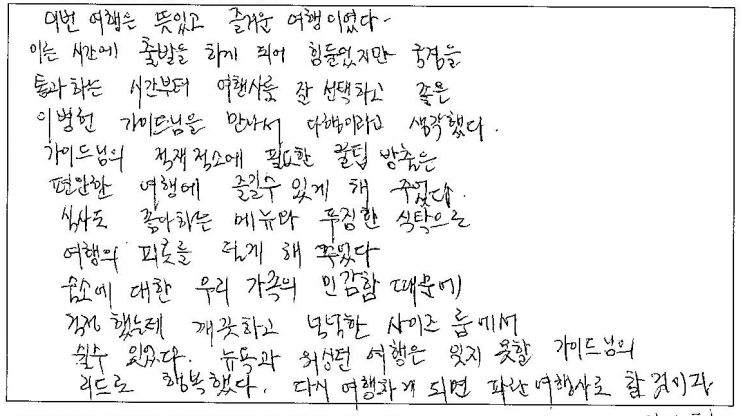 이번 여행은 뜻있고 즐거운 여행이였다.
이른 시간에 출발을 하게 되어 힘들었지만 국경을
통과하는 시간부터 여행사를 잘 선택하고 좋은
이병헌 가이드님을 만나서 다행이라고 생각했다.
가이드님의 적재적소에 필요한 꿀팁 방출은
편안한 여행에 즐길수 있게 해 주었다.
식사도 좋아하는 메뉴와 푸짐한 식탁으로
여행의 피로를 덜게 해 주었다
숙소에 대한 우리 가족의 민감함 때문에
걱정 했는데 깨끗하고 넉넉한 사이즈 룸에서
쉴수 있었다. 뉴욕과 워싱턴 여행은 잊지 못할 가이드님의
리드로 행복했다. 다시 여행하게 되면 파란여행사로 할 것이다.